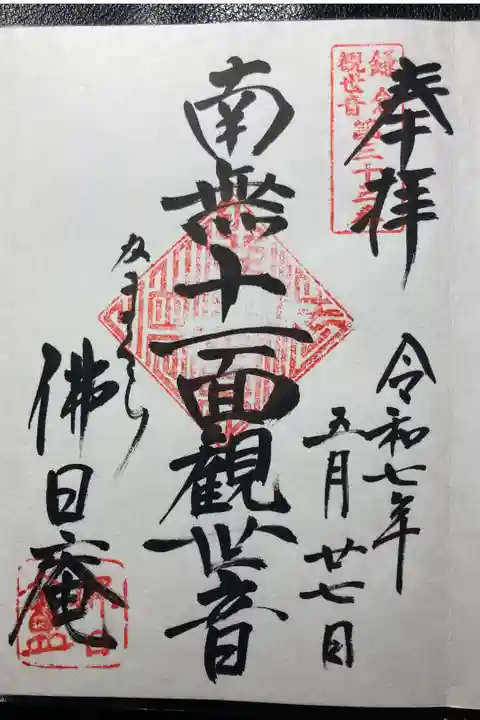 奉拝
鎌倉
観世音第三十三番
令和七年
五月廿七日
南無十一面観世音
かまくら
佛日庵